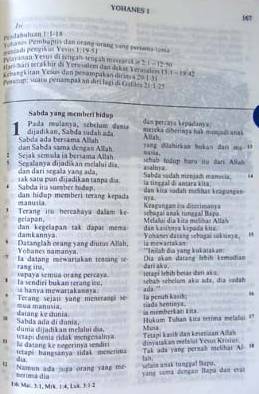 YOHANES 1
167
Pendahuluan 1:1-18
Yohanes Pembaptis dan orang-orang yang pertama-tama
menjadi pengikut Yesus 1:19-51
Pelayanan Yesus di tengah-tengah masyarakat 2:1-12:50
Hari-hari terakhir di Yerusalem dan dekat Yerusalem 13:1-19:42
Kebangkitan Yesus dan penampakan dirinya 20:1-31
Penutup: suatu penampakan diri lagi di Galilea 21:1-25
Sabda yang memberi hidup
1 Pada mulanya, sebelum dunia
dijadikan, Sabda sudah ada.
Sabda ada bersama Allah
dan Sabda sama dengan Allah.
Sejak semula ia bersama Allah.
Segalanya dijadikan melalui dia,
dan dari segala yang ada,
tak satu pun dijadikan tanpa dia.
Sabda itu sumber hidup,
dan hidup memberi terang kepada
manusia.
Terang itu bercahaya dalam ke-
gelapan,
dan kegelapan tak dapat mema-
damkannya.
Datanglah orang yang diutus Allah,
Yohanes namanya.
Ia datang mewartakan tentang te-
rang itu,
supaya semua orang percaya.
Ia sendiri bukan terang itu,
ia hanya mewartakannya.
Terang sejati yang menerangi se-
mua manusia,
datang ke dunia.
Sabda ada di dunia,
dunia dijadikan melalui dia,
tetapi dunia tidak mengenalnya.
Ia datang ke negerinya sendiri
tetapi bangsanya tidak menerima
dia.
Namun ada juga orang yang me-
nerima dia
dan percaya kepadanya;
mereka diberinya hak menjadi anak
Allah,
yang dilahirkan bukan dari
sebab hidup baru itu dari Allah
asalnya.
Sabda sudah menjadi manusia,
ia tinggal di antara kita,
dan kita sudah melihat keagungan-
nya.
Keagungan itu diterimanya
sebagai anak tunggal Bapa.
Melalui dia kita melihat Allah
dan kasihnya kepada kita.
Yohanes datang sebagai saksinya,
ia mewartakan:
"Inilah dia yang kukatakan:
Dia akan datang lebih kemudian
dari aku,
tetapi lebih besar dari aku,
sebab sebelum aku ada, dia sudah
ada."
Ia penuh kasih;
tiada hentinya,
ia memberkati kita.
Hukum Tuhan kita terima melalui
Musa.
Tetapi kasih dan kesetiaan Allah
dinyatakan melalui Yesus Kristus.
Tak ada yang pernah melihat Al-
lah,
selain anak tunggal Bapa,
yang sama dengan Bapa dan erat
1:6: Mat. 3:1, Mrk. 1:4, Luk. 3:1-2